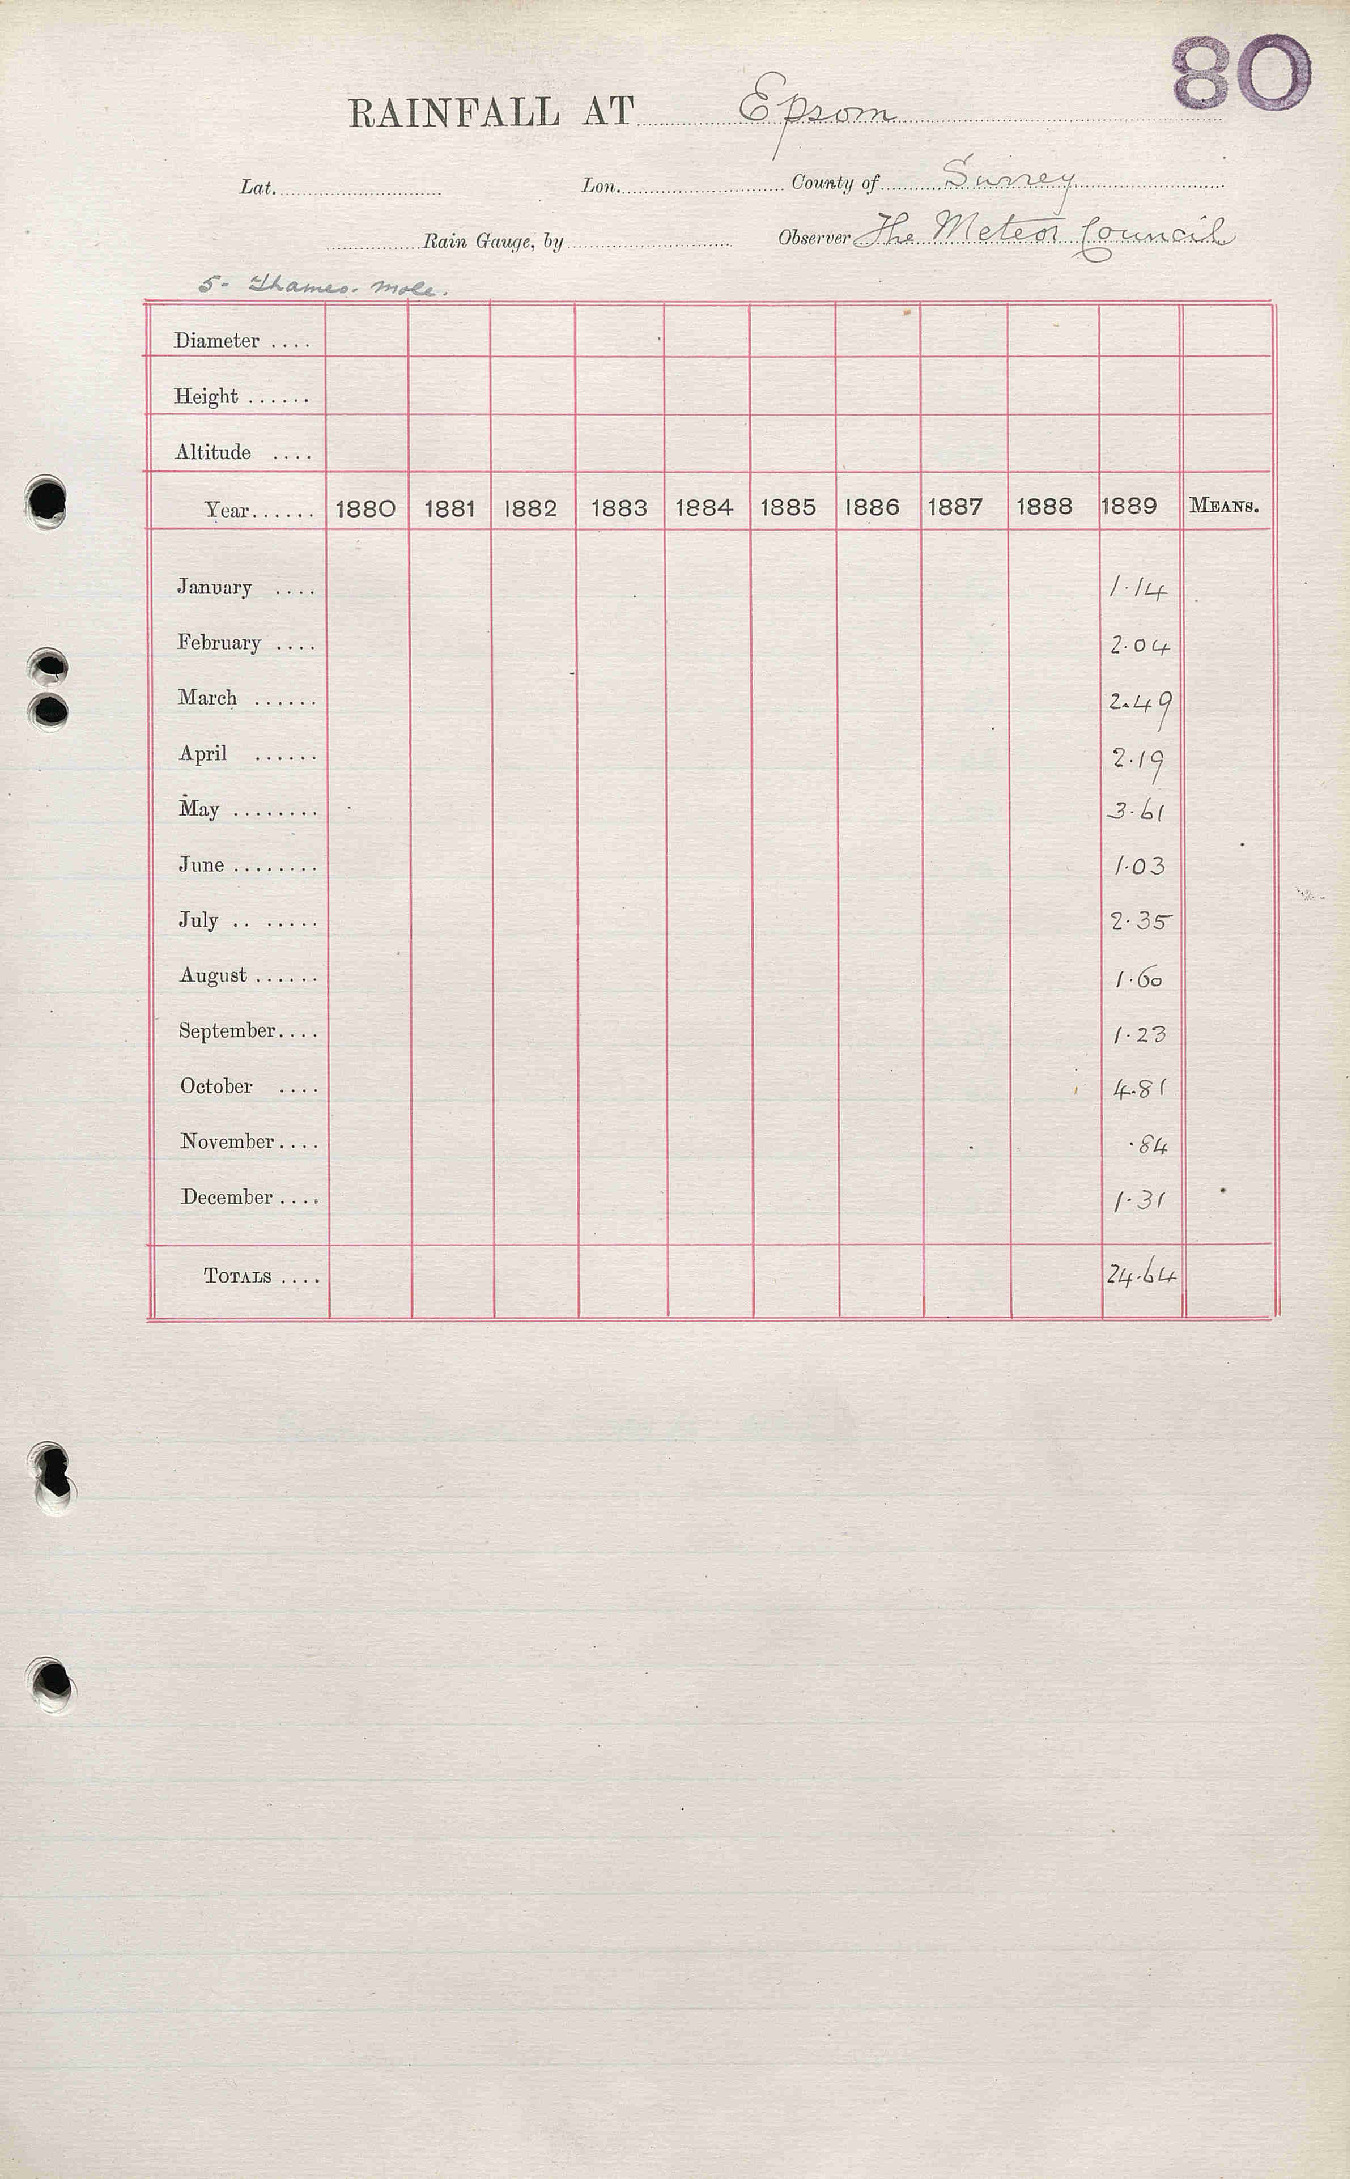 80
RAINFALL AT Epsom
Lat. Lon. County of Surrey
Rain Gauge, by Observer The Meteor Council
5- Thames. Mole.
Diameter ....
Height ......
Altitude ....
Year...... 1880 1881 1882 1883 1884 1885 1886 1887 1888 1889 MEANS.
January .... 1.14
February .... 2.04
March ...... 2.49
April ...... 2.19
May ........ 3.61
June ........ 1.03
July .. ..... 2.35
August ...... 1.60
September.... 1.23
October .... 4.81
November.... .84
December .... 1.31
TOTALS .... 24.64